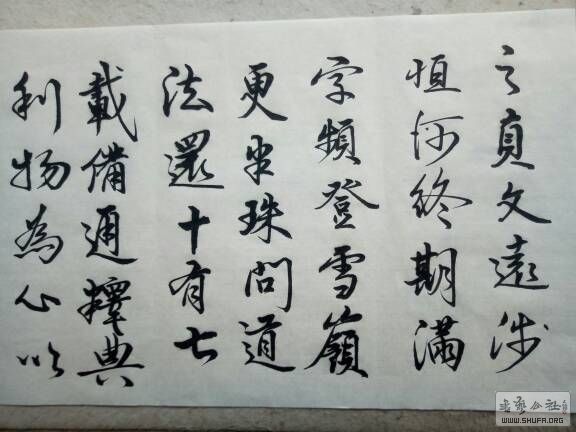 之真文遠涉
恒河終期滿
字頻登雪嶺
更半珠問道
法還十有七
載備通釋典
利物為心以
书艺公社
WWW.SHUFA.ORG